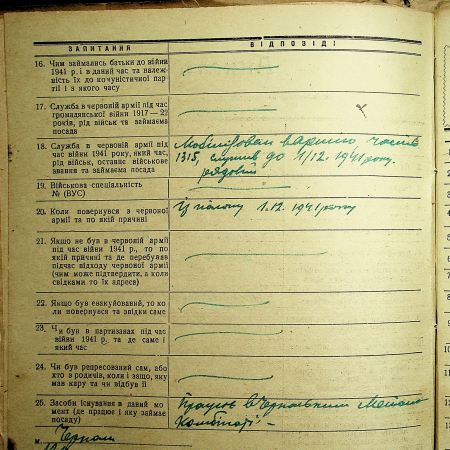 ЗАПИТАННЯ ВІДПОВІДІ
16. Чим займались батьки до війни
1941 р. і в даний час та належ-
ність їх до комуністичної пар-
тії і з якого часу
17. Служба в червоній армії під час
громадянської війни 1917—22
років, рід військ та займаєма
посада
18. Служба в червоній армії під
час війни 1941 року, який час,
рід військ, останнє військове
звання та займаєма посада
Мобілізован в армию, часть
1315, служив до 1/12. 1941 року.
рядовий
19. Військова спеціальність
№ (ВУС)
20. Коли повернувся з червоної
армії та по якій причині
Із полону 1.12. 1941 року
21. Якщо не був в червоній армії
під час війни 1941 р., то по
якій причині та де перебував
підчас відходу червоної армії
(чим може підтвердити, а коли
свідками то їх адреса)
22. Якщо був евакуйований, то ко-
ли повернувся та звідки саме
23. Чи був в партизанах під час
війни 1941 р. та де саме і
який час
24. Чи був репресований сам, або
хто з родичів, коли і защо, яку
мав кару та чи відбув її
25. Засоби існування в даний мо-
мент (де працює і яку займає
посаду)
Працює в
Комбінаті —
м.